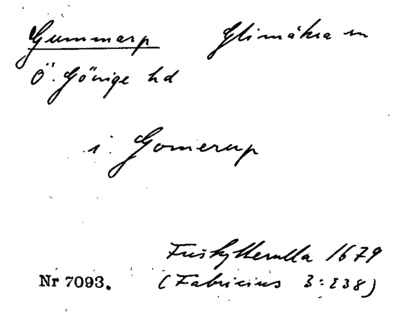 Gummarp Glimåkra sn
Ö. Göinge hd
i Gomerup
Friskytterulla 1679
Nr 7093. (Fabricius 3:238)